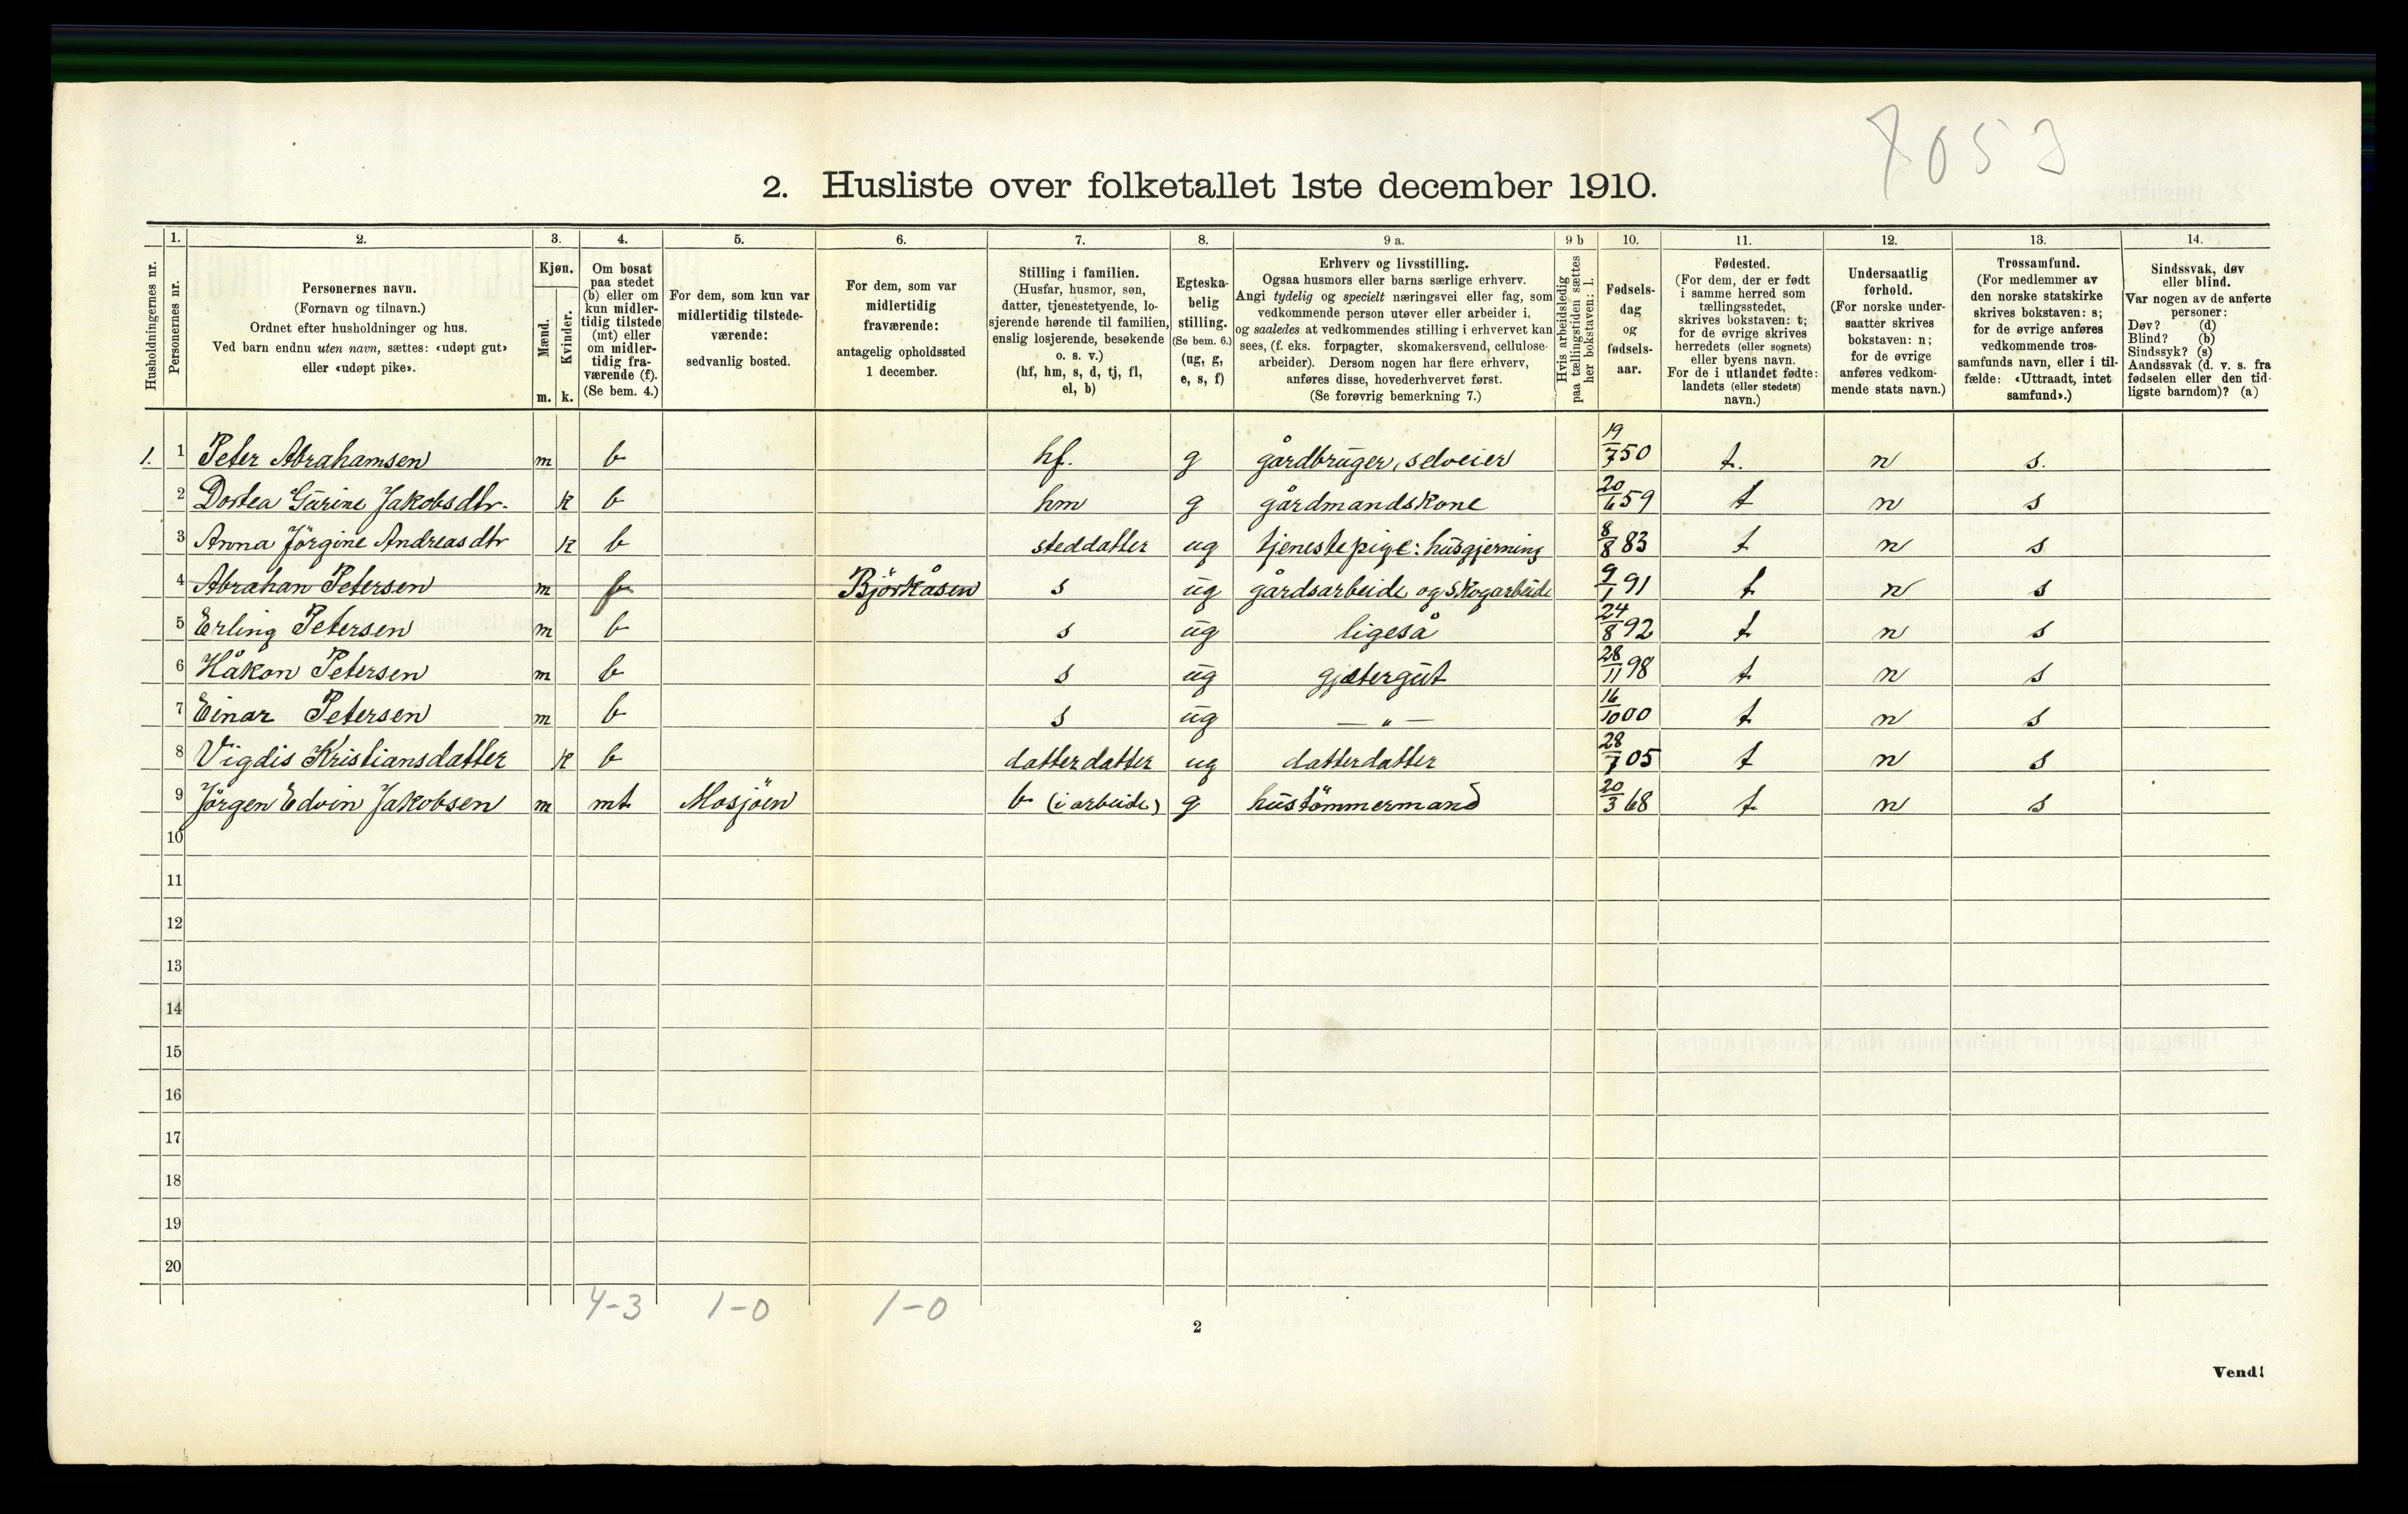 7053
2. Husliste over folketallet 1ste december 1910.
Husholdningernes nr.
1.
Personernes nr.
2.
Personernes navn.
(Fornavn og tilnavn.)
Ordnet efter husholdninger og hus.
Ved barn endnu uten navn, sættes: «udøpt gut»
eller «udøpt pike».
3.
Kjøn.
Mænd.
Kvinder.
m. k.
4.
Om bosat
paa stedet
(b) eller om
kun midler-
tidig tilstede
(mt) eller
om midler-
tidig fra-
værende (f).
(Se bem. 4.)
5.
For dem, som kun var
midlertidig tilstede-
værende:
sedvanlig bosted.
6.
For dem, som var
midlertidig
fraværende:
antagelig opholdssted
1 december.
7.
Stilling i familien.
(Husfar, husmor, søn,
datter, tjenestetyende, lo-
sjerende hørende til familien,
enslig losjerende, besøkende
o. s. v.)
(hf, hm, s, d, tj, fl,
el, b)
8.
Egteska-
belig
stilling.
(Se bem. 6.)
(ug, g,
e, s, f)
9 a.
Erhverv og livsstilling.
Ogsaa husmors eller barns særlige erhverv.
Angi tydelig og specielt næringsvei eller fag, som
vedkommende person utøver eller arbeider i,
og saaledes at vedkommendes stilling i erhvervet kan
sees, (f. eks. forpagter, skomakersvend, cellulose-
arbeider). Dersom nogen har flere erhverv,
anføres disse, hovederhvervet først.
(Se forøvrig bemerkning 7.)
9 b
Hvis arbeidsledig
paa tællingstiden sættes
her bokstaven: l.
10.
Fødsels-
dag
og
fødsels-
aar.
11.
Fødested.
(For dem, der er født
i samme herred som
tællingsstedet,
skrives bokstaven: t;
for de øvrige skrives
herredets (eller sognets)
eller byens navn.
For de i utlandet fødte:
landets (eller stedets)
navn.)
12.
Undersaatlig
forhold.
(For norske under-
saatter skrives
bokstaven: n;
for de øvrige
anføres vedkom-
mende stats navn.)
13.
Trossamfund.
(For medlemmer av
den norske statskirke
skrives bokstaven: s;
for de øvrige anføres
vedkommende tros-
samfunds navn, eller i til-
fælde: «Uttraadt, intet
samfund».)
14.
Sindssvak, døv
eller blind.
Var nogen av de anførte
personer:
Døv? (d)
Blind? (b)
Sindssyk? (s)
Aandssvak (d. v. s. fra
fødselen eller den tid-
ligste barndom)? (a)
1. 1 Peter Abrahamsen m b hf. g gårdbruger, selveier 19/7 50 t. n s.
2 Dortea Gurine Jakobsdtr. k b hm g gårdmandskone 20/6 59 t n s
3 Anna Jörgine Andreasdtr k b steddatter ug tjenestepige: husgjerning 8/8 83 t n s
4 Abrahan Petersen m f Björkåsen s ug gårdsarbeide og skogarbeide 9/1 91 t n s
5 Erling Petersen m b s ug ligeså 24/8 92 t n s
6 Håkon Petersen m b s ug gjætergut 28/11 98 t n s
7 Einar Petersen m b s ug — „ — 16/10 00 t n s
8 Vigdis Kristiansdatter k b datterdatter ug datterdatter 28/7 05 t n s
9 Jörgen Edvin Jakobsen m mt Mosjöen b (i arbeide) g hustömmermand 20/3 68 t n s
10
11
12
13
14
15
16
17
18
19
20
4-3 1-0 1-0
2
Vend!